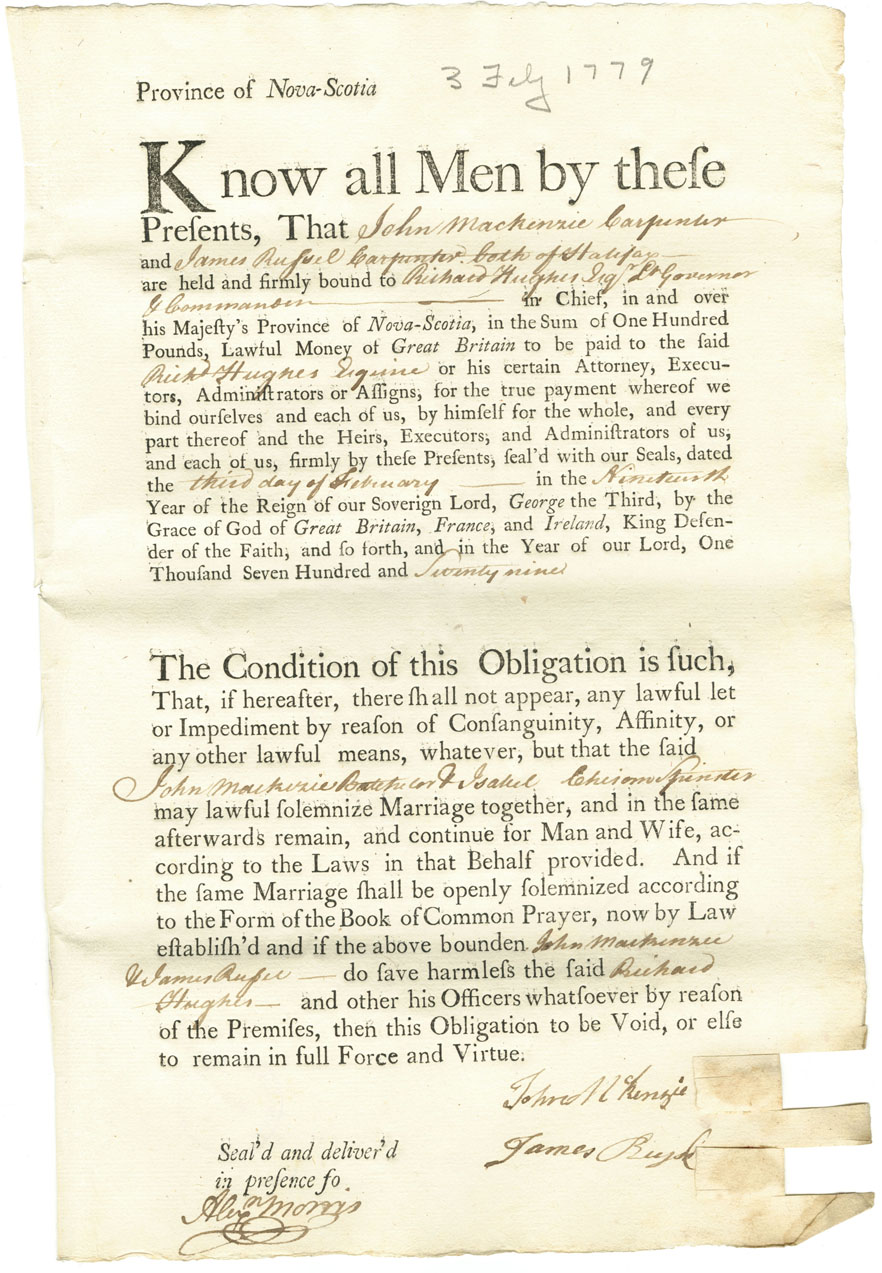 3 Feby 1779
Province of Nova-Scotia
Know all Men by theſe
Preſents, That John Mackenzie Carpenter
and James Ruſsel Carpenter both of Halifax
are held and firmly bound to Richard Hughes Esqr. Lt Governor
& Commander in Chief, in and over
his Majeſty's Province of Nova-Scotia, in the Sum of One Hundred
Pounds, Lawful Money of Great Britain to be paid to the ſaid
Richd Hughes Esquire or his certain Attorney, Execu-
tors, Adminiſtrators or Aſſigns, for the true payment whereof we
bind ourſelves and each of us, by himſelf for the whole, and every
part thereof and the Heirs, Executors, and Adminiſtrators of us,
and each of us, firmly by theſe Preſents, ſeal'd with our Seals, dated
the third day of February in the Nineteenth
Year of the Reign of our Soverign Lord, George the Third, by the
Grace of God of Great Britain, France, and Ireland, King Defen-
der of the Faith, and ſo forth, and in the Year of our Lord, One
Thouſand Seven Hundred and Seventy nine
The Condition of this Obligation is ſuch,
That, if hereafter, there ſhall not appear, any lawful let
or Impediment by reaſon of Conſanguinity, Affinity, or
any other lawful means, whatever, but that the ſaid
John Mackezie Batchelor & Isabel Chisom Spinster
may lawful ſolemnize Marriage together, and in the ſame
afterwards remain, and continue for Man and Wife, ac-
cording to the Laws in that Behalf provided. And if
the ſame Marriage ſhall be openly ſolemnized according
to the Form of the Book of Common Prayer, now by Law
eſtabliſh'd and if the above bounden John Mackenzie
& James Ruſsel do ſave harmleſs the ſaid Richard
Hughes and other his Officers whatſoever by reaſon
of the Premiſes, then this Obligation to be Void, or elſe
to remain in full Force and Virtue.
John McKenzie
James Ruſsel
Seal'd and deliver'd
in preſence fo
Alexr Morris